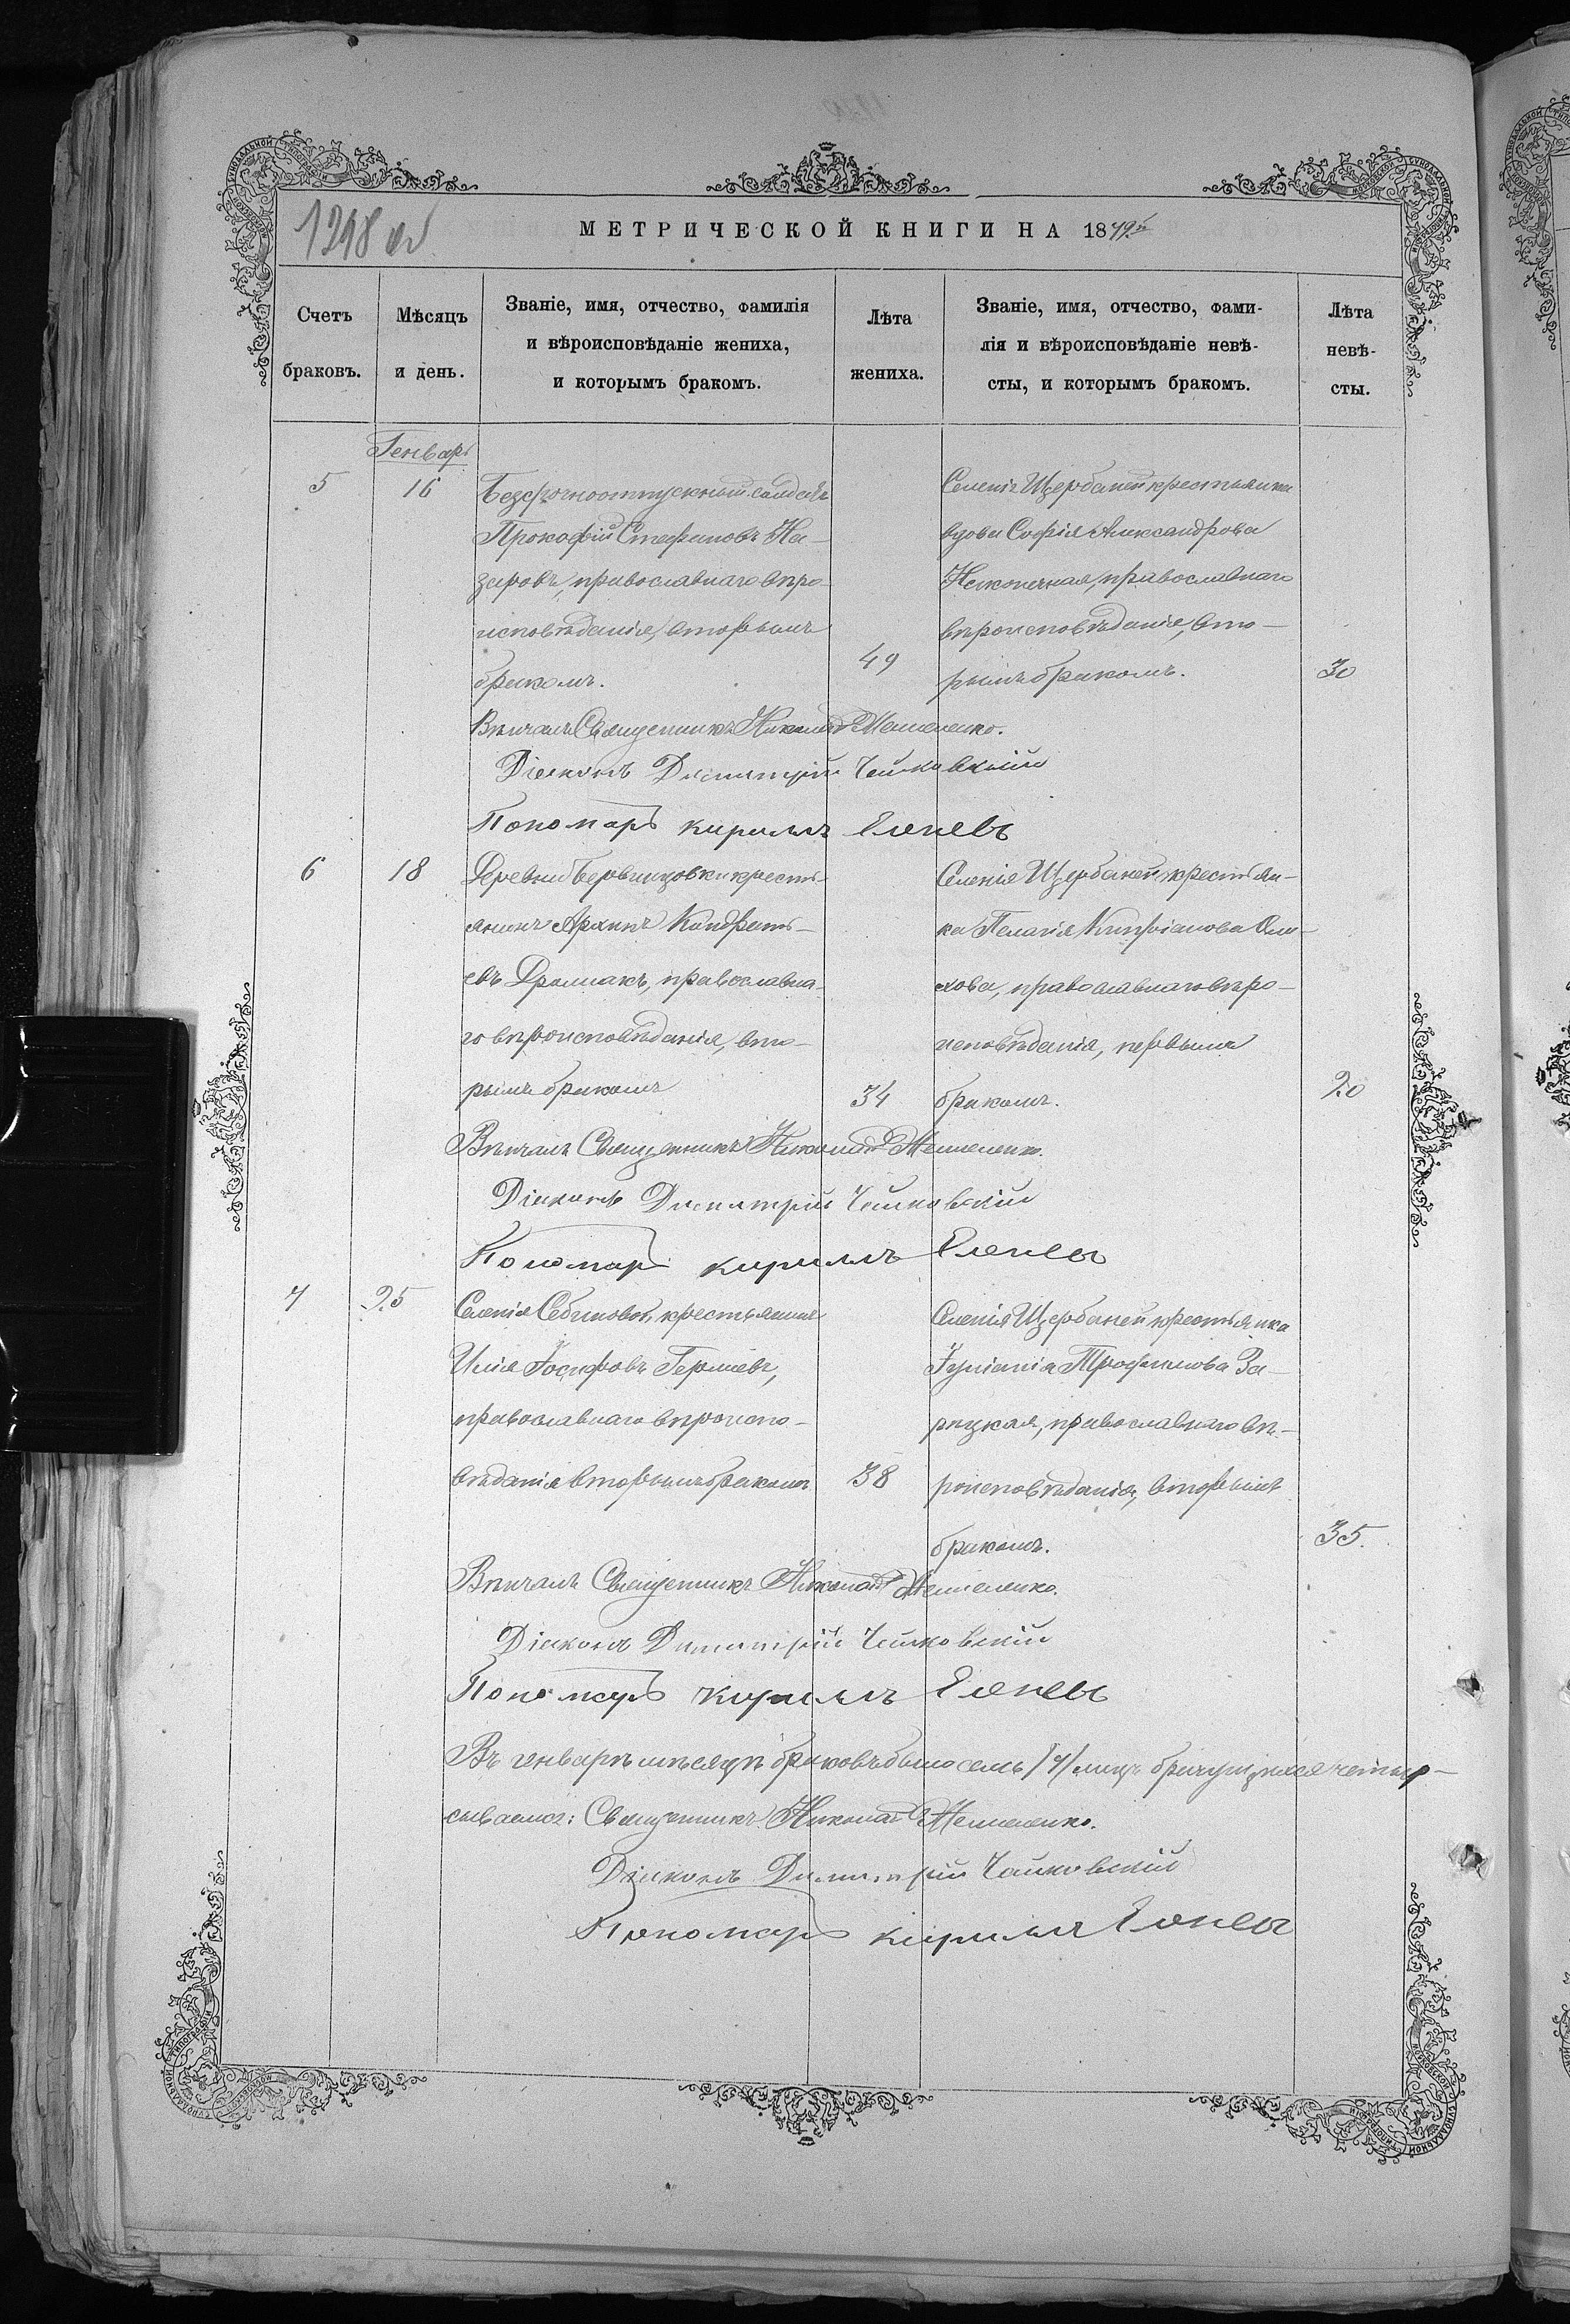 1218 об
МЕТРИЧЕСКОЙ КНИГИ НА 1879й
Счетъ браковъ.
Мѣсяцъ и день.
Званіе, имя, отчество, фамилія
и вѣроисповѣданіе жениха,
и которымъ бракомъ.
Лѣта жениха.
Званіе, имя, отчество, фами-
лія и вѣроисповѣданіе невѣ-
сты, и которымъ бракомъ.
Лѣта невѣ-
сты.
Генварь
5
16
Безсрочноотпускный солдатъ
Прокофій Стефановъ На-
заровъ, православнаго вѣро-
исповѣданія, вторымъ
бракомъ.
49
Селенія Щербаней крестьянка
вдова Софія Александрова
Наконечная, православнаго
вѣроисповѣданія, вто-
рымъ бракомъ.
30
Вѣнчалъ Священникъ Николай
Діаконъ Димитрій Чайковскій
Пономарь Кириллъ Еленевъ
6
18
Деревни кресть-
янинъ Архипъ Кондрать-
евъ православна-
го вѣроисповѣданія, вто-
рымъ бракомъ
34
Селенія Щербаней крестьян-
ка Пелагія Кипріанова
православнаго вѣро-
исповѣданія, первымъ
бракомъ.
20
Вѣнчалъ Священникъ Николай
Діаконъ Димитрій Чайковскій
Пономарь Кириллъ Еленевъ
7
25
Селенія крестьянинъ
Илія Іосифовъ
православнаго вѣроиспо-
вѣданія вторымъ бракомъ
38
Селенія Щербаней крестьянка
Іуліанія Трофимова За-
рицкая, православнаго вѣ-
роисповѣданія, вторымъ
бракомъ.
35.
Вѣнчалъ Священникъ Николай
Діаконъ Димитрій Чайковскій
Пономарь Кириллъ Еленевъ
Въ генварѣ мѣсяцѣ браковъ было семь /7/ лицъ
Священникъ Николай
Діаконъ Димитрій Чайковскій
Пономарь Кириллъ Еленевъ